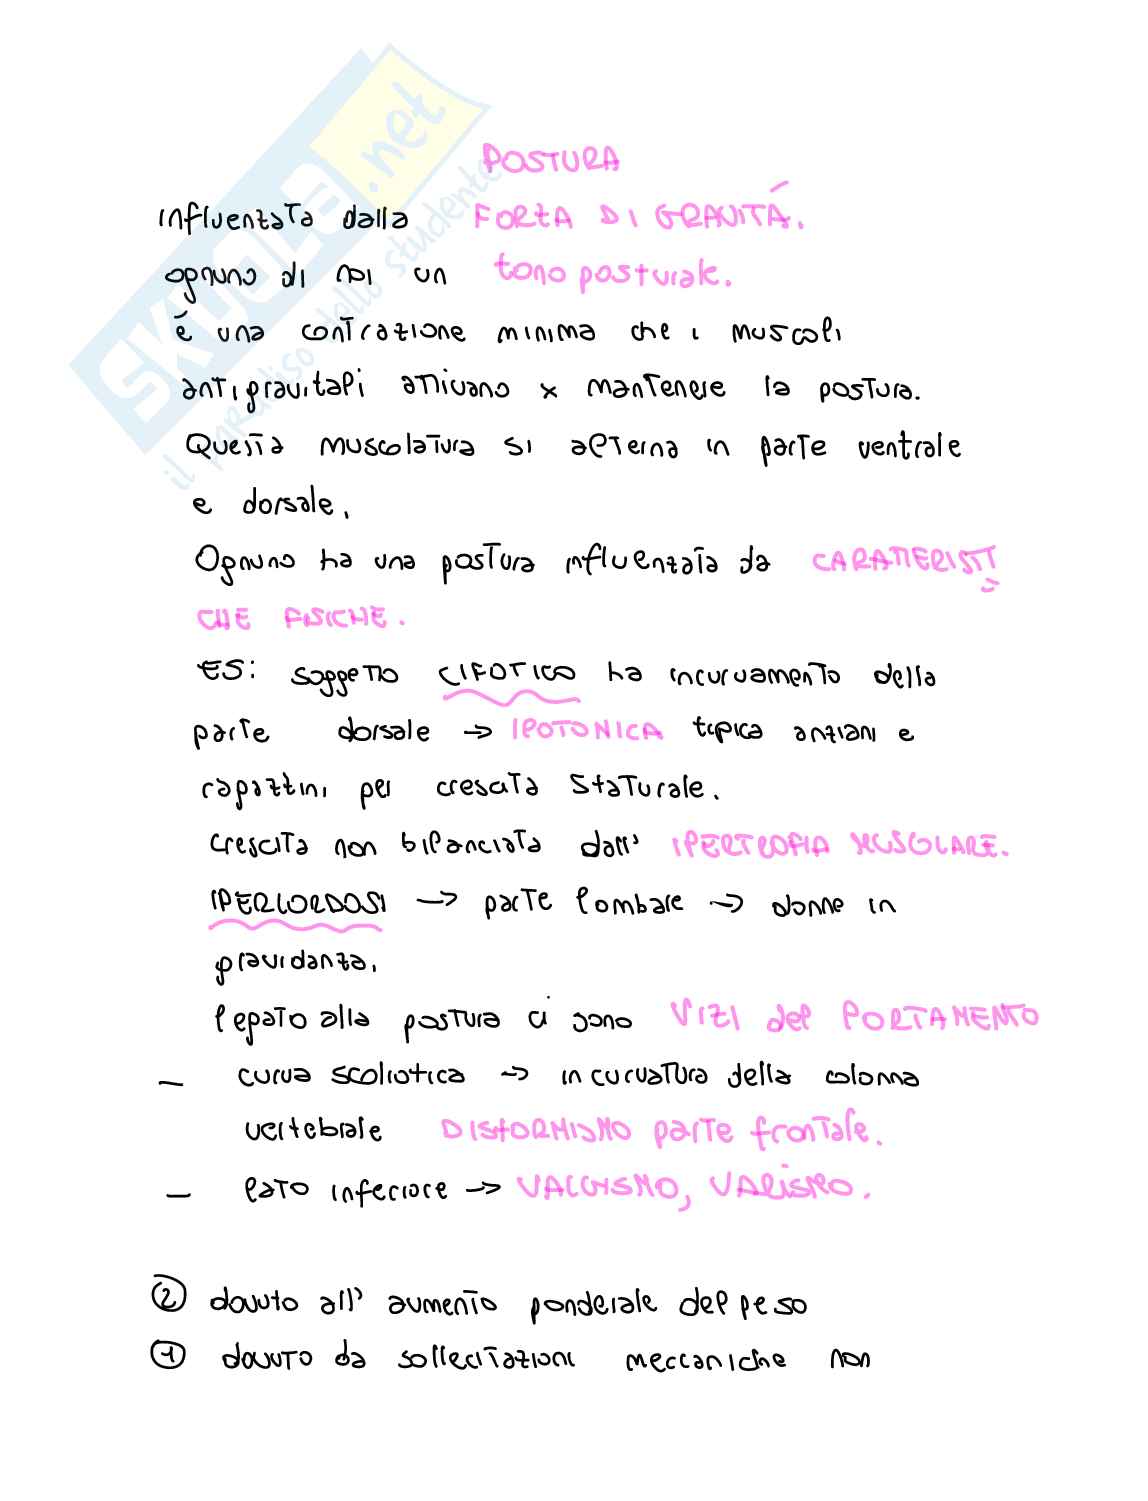 SKUOLA.net
il paradiso dello studente
POSTURA
influenzata dalla FORZA DI GRAVITÁ.
ognuno di noi un tono posturale.
é una contrazione minima che i muscoli
antigravitali attivano x mantenere la postura.
Questa muscolatura si alterna in parte ventrale
e dorsale.
Ognuno ha una postura influenzata da CARATTERISTI
CHE FISICHE.
ES: soggetto CIFOTICO ha incurvamento della
parte dorsale → IPOTONICA tipica anziani e
ragazzini per crescita staturale.
crescita non bilanciata dall' IPERTROFIA MUSCOLARE.
IPERLORDOSI → parte lombare → donne in
gravidanza.
legato alla postura ci sono VIZI del PORTAMENTO
– curva scoliotica → incurvatura della colonna
vertebrale DISFORMISMO parte frontale.
– lato inferiore → VALGISMO, VARISMO.
② dovuto all' aumento ponderale del peso
① dovuto da sollecitazioni meccaniche non